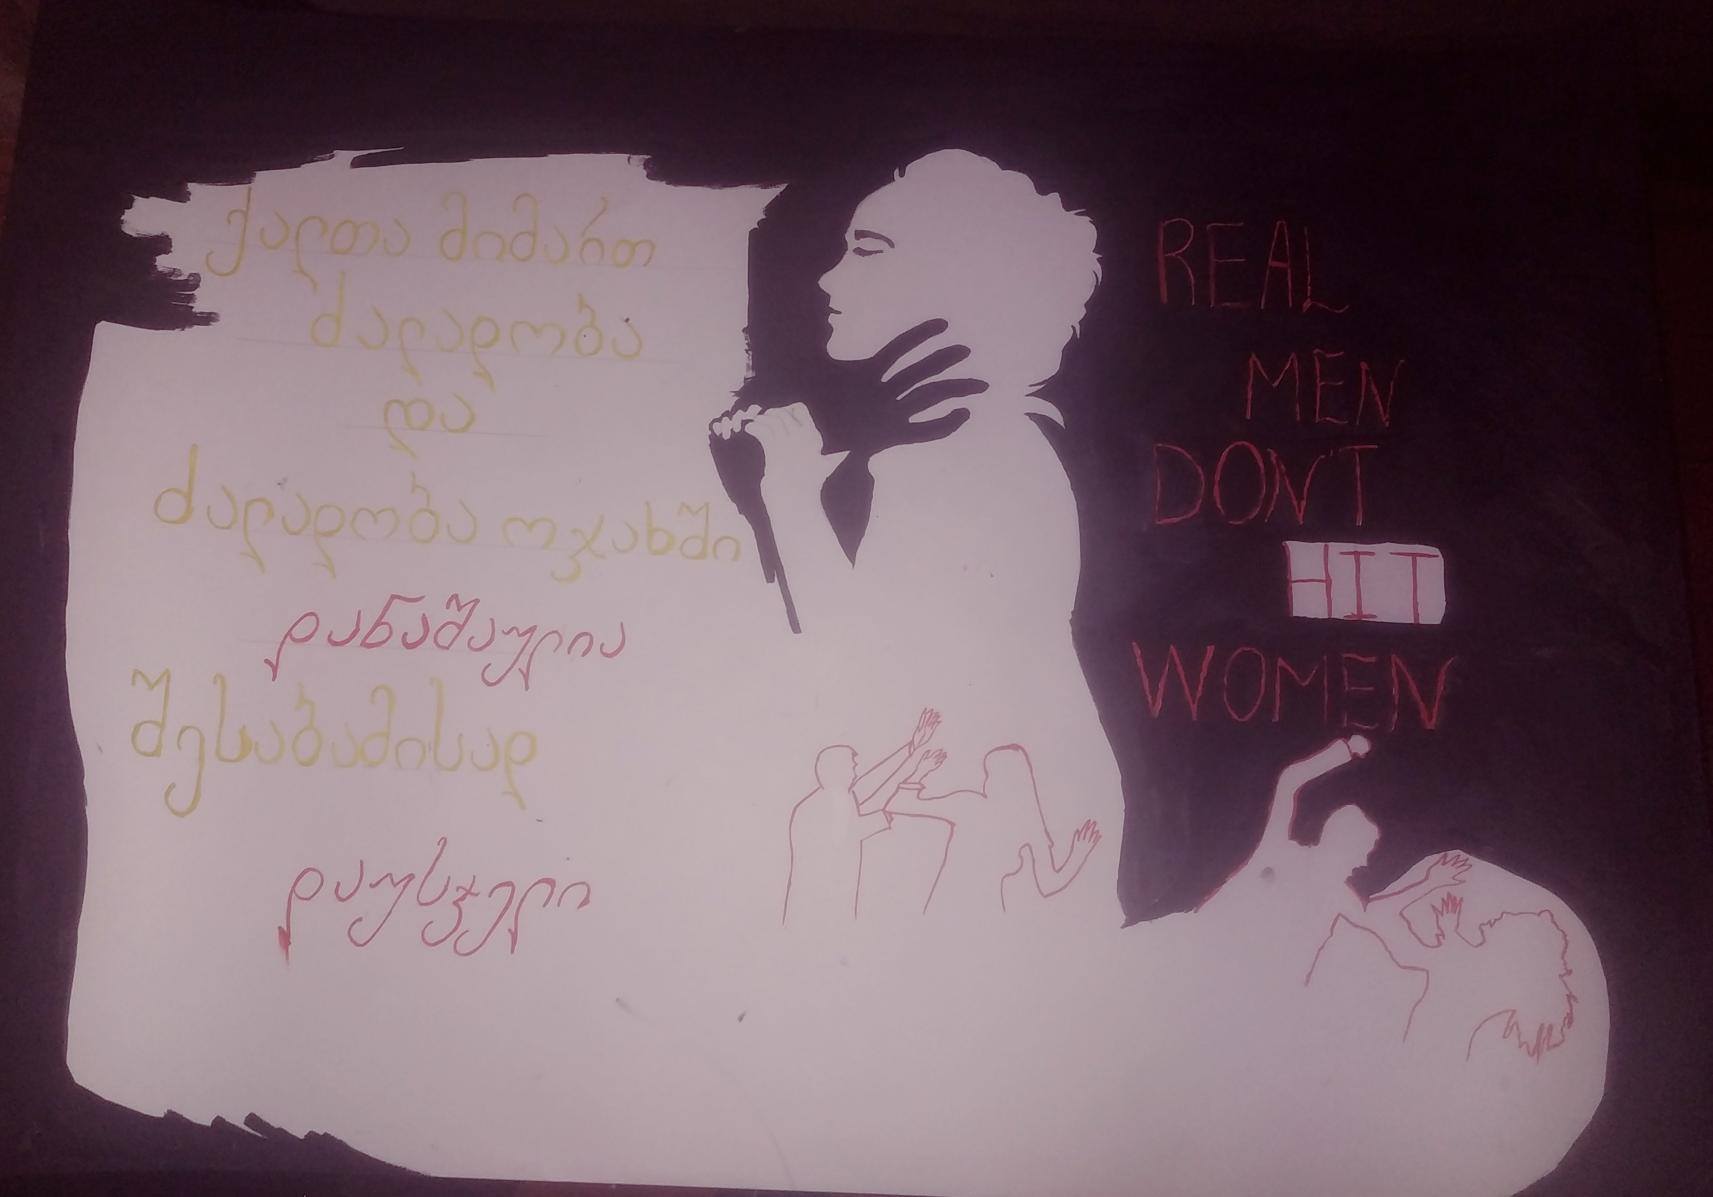 ქალთა მიმართ
ძალადობა
და
ძალადობა ოჯახში
დანაშაულია
შესაბამისად
დაუსჯელი
REAL
MEN
DON'T
HIT
WOMEN